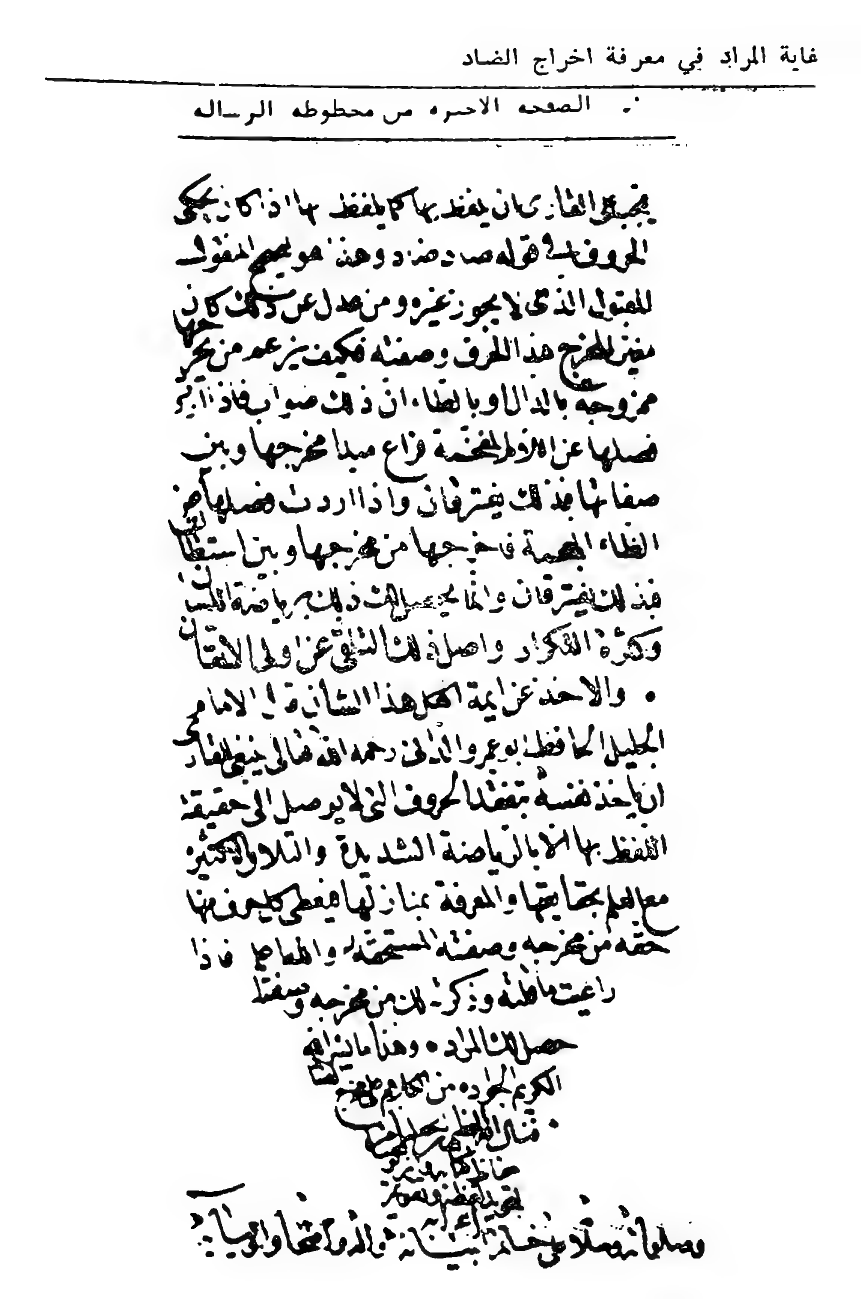 غاية المراد في معرفة اخراج الضاد
الصفحة الاخيرة من مخطوطة الرسالة
يجب على القارئ ان يلفظ بها كما يلفظ بها اذا كان يحكى
الحروف في قوله صاد ضاد وهذا هو الصحيح المنقول
المقبول الذى لا يجوز غيره ومن عدل عن ذلك كان
مغير المخرج هذا الحرف وصفته فكيف يزعم من يخرجها
ممزوجة بالدال او بالطاء ان ذلك صواب فاذا
فصلها عن اللام المفخمة فراع مبدا مخرجها وبين
صفاتها فبذلك يفترقان واذا اردت فصلها عن
الظاء المعجمة فاخرجها من مخرجها وبين استطالتها
فبذلك يفترقان وانما يحصل لك ذلك برياضة اللسان
وكثرة التكرار واصل ذلك التلقى عن اولى الاتقان
والاخذ عن ايمة اهل هذا الشان قال الامام
الجليل الحافظ ابو عمرو الدانى رحمه الله تعالى ينبغى للقارى
ان ياخذ نفسه بتفقد الحروف التى لا يوصل الى حقيقة
اللفظ بها الا بالرياضة الشديدة والتلاوة الكثيرة
مع العلم بحقايقها والمعرفة بمنازلها فيعطى كل حرف منها
حقه من مخرجه وصفته المستحقة فاذا
راعيت ما قلته وذكرته لك من مخرجه وصفته
حصل لك المراد وهذا ما يسر الله
الكريم الجواد من الكلام على مخرج